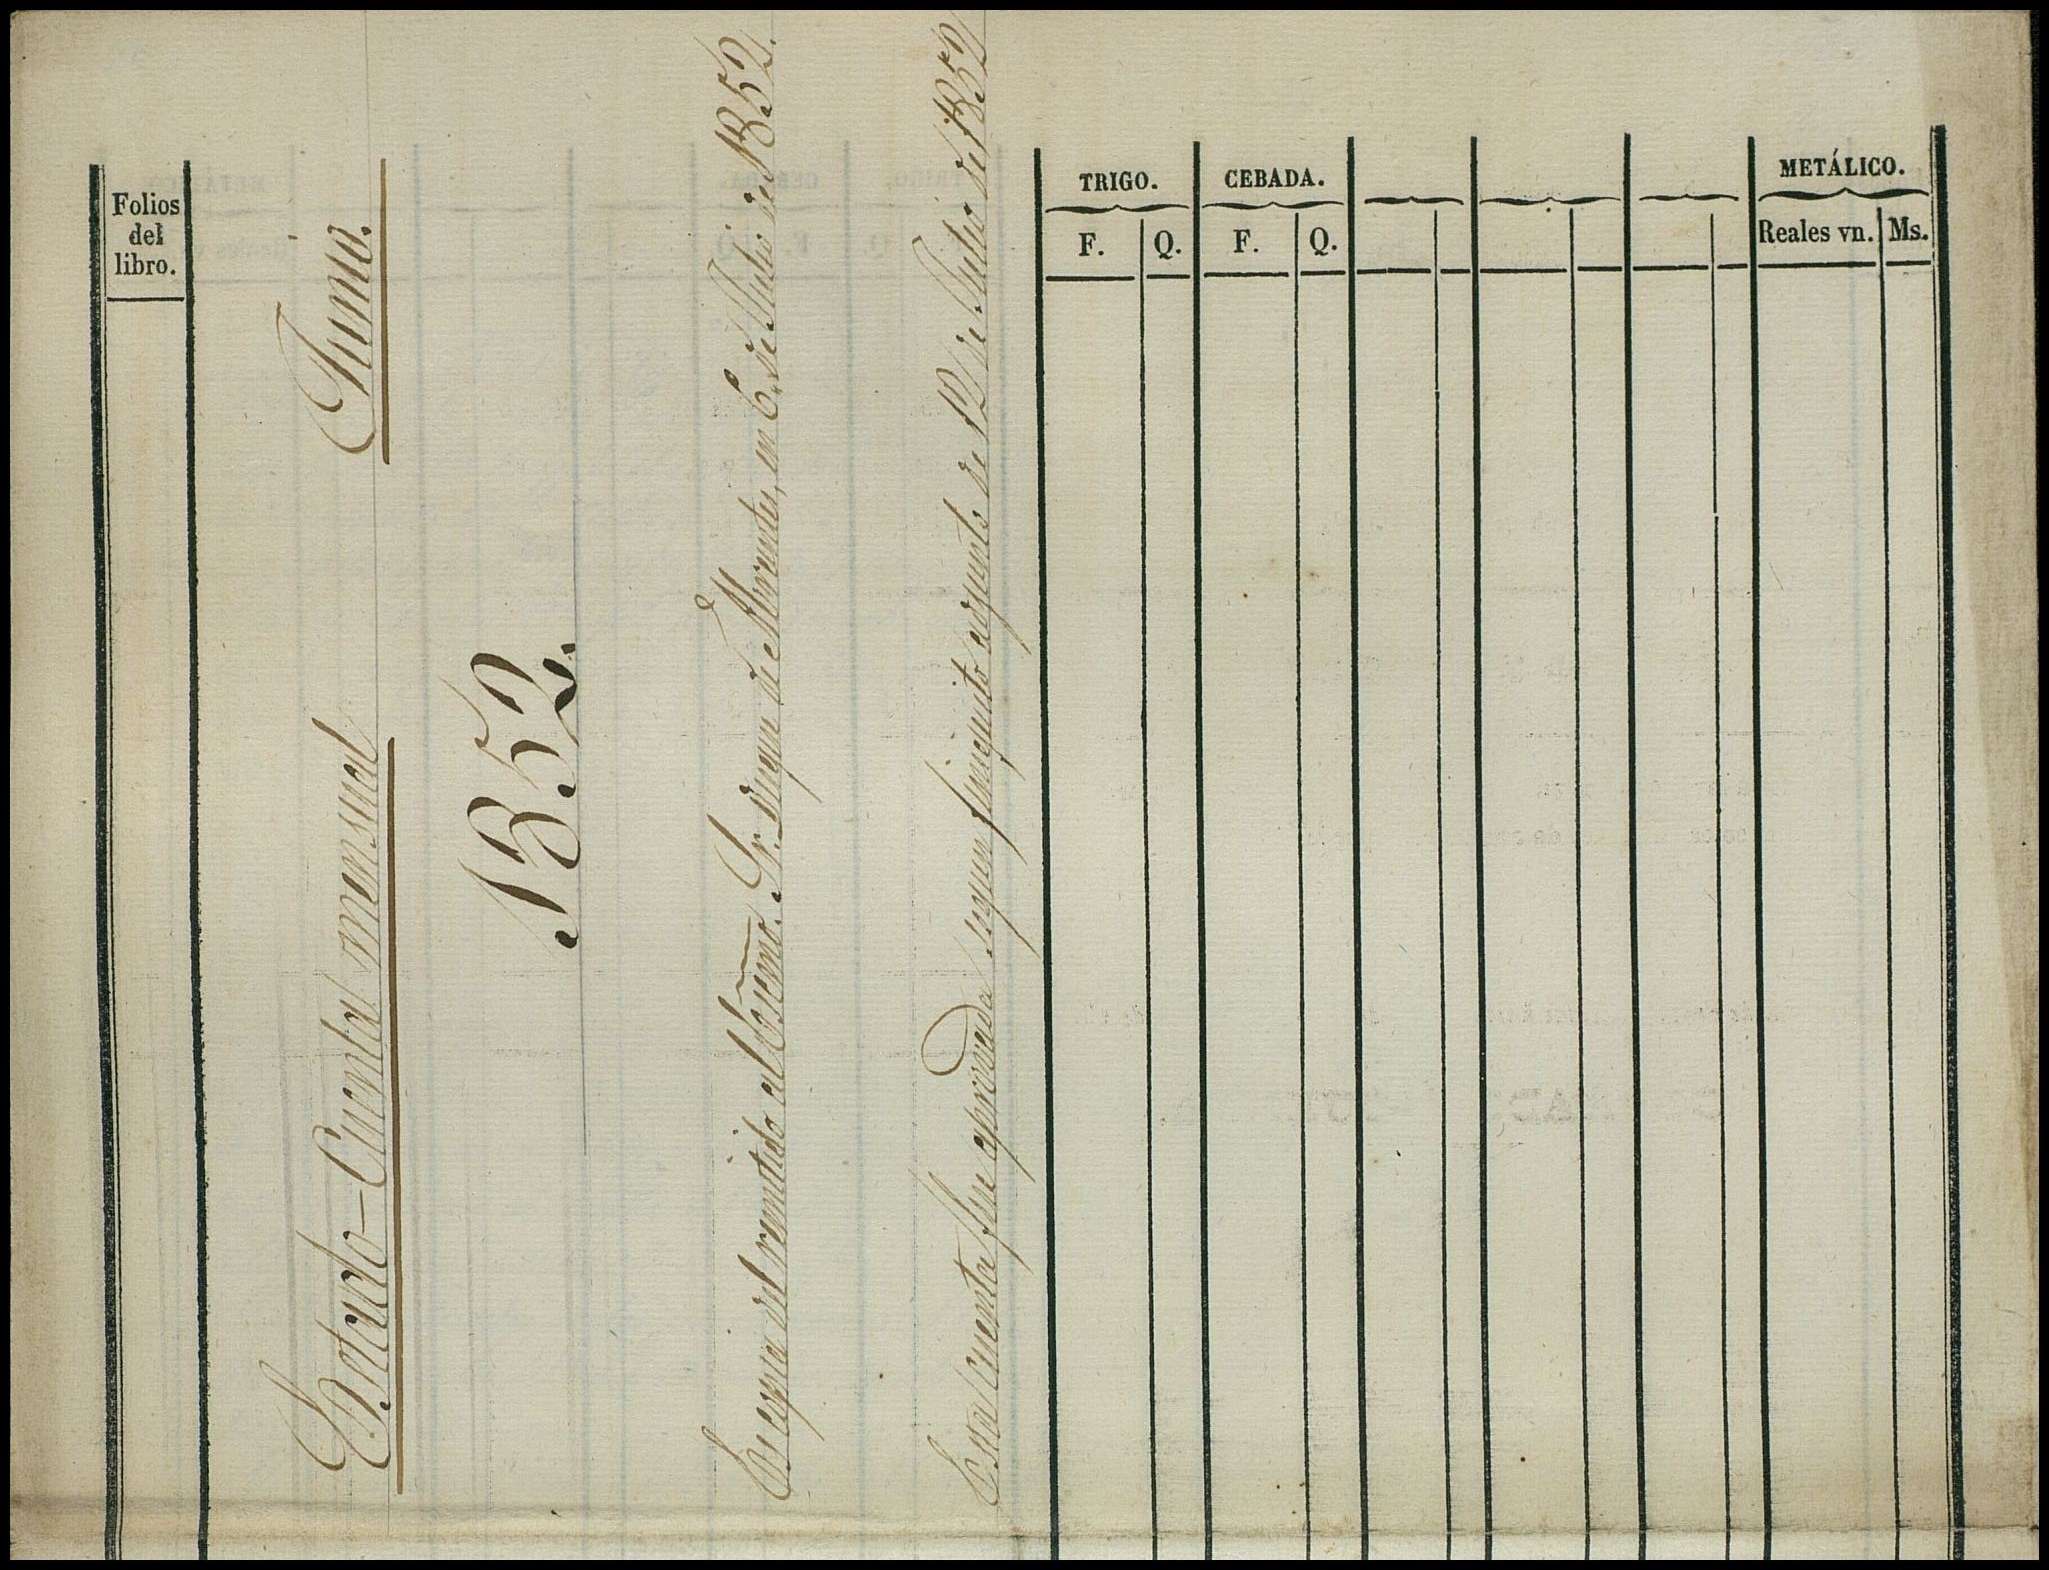 Folios
del
libro.
TRIGO.
CEBADA.
METÁLICO.
F.
Q.
F.
Q.
Reales vn.
Ms.
Estado-Cuenta mensual
Junio.
1852.
Es copia del remitido al Escmo. Sr. Duque de Abrantes, en 6. de Julio de 1852.
Esta cuenta fue aprovada segun finiquito adjunto de 12 de Julio de 1852